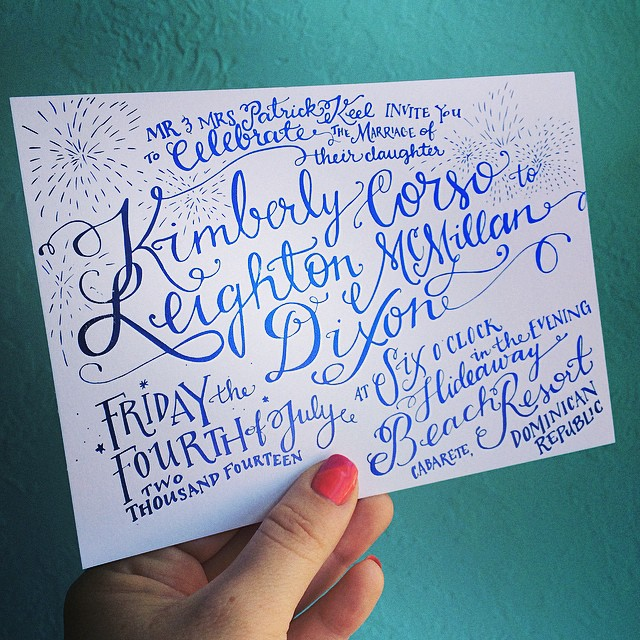 MR & MRS Patrick Keel INVITE YOU
TO Celebrate THE MARRIAGE of
their daughter
Kimberly Corso to
Leighton McMillan
Dixon
FRIDAY the
FOURTH of July
TWO
THOUSAND FOURTEEN
AT SIX O'CLOCK
in the EVENING
Hideaway
Beach Resort
CABARETE, DOMINICAN
REPUBLIC